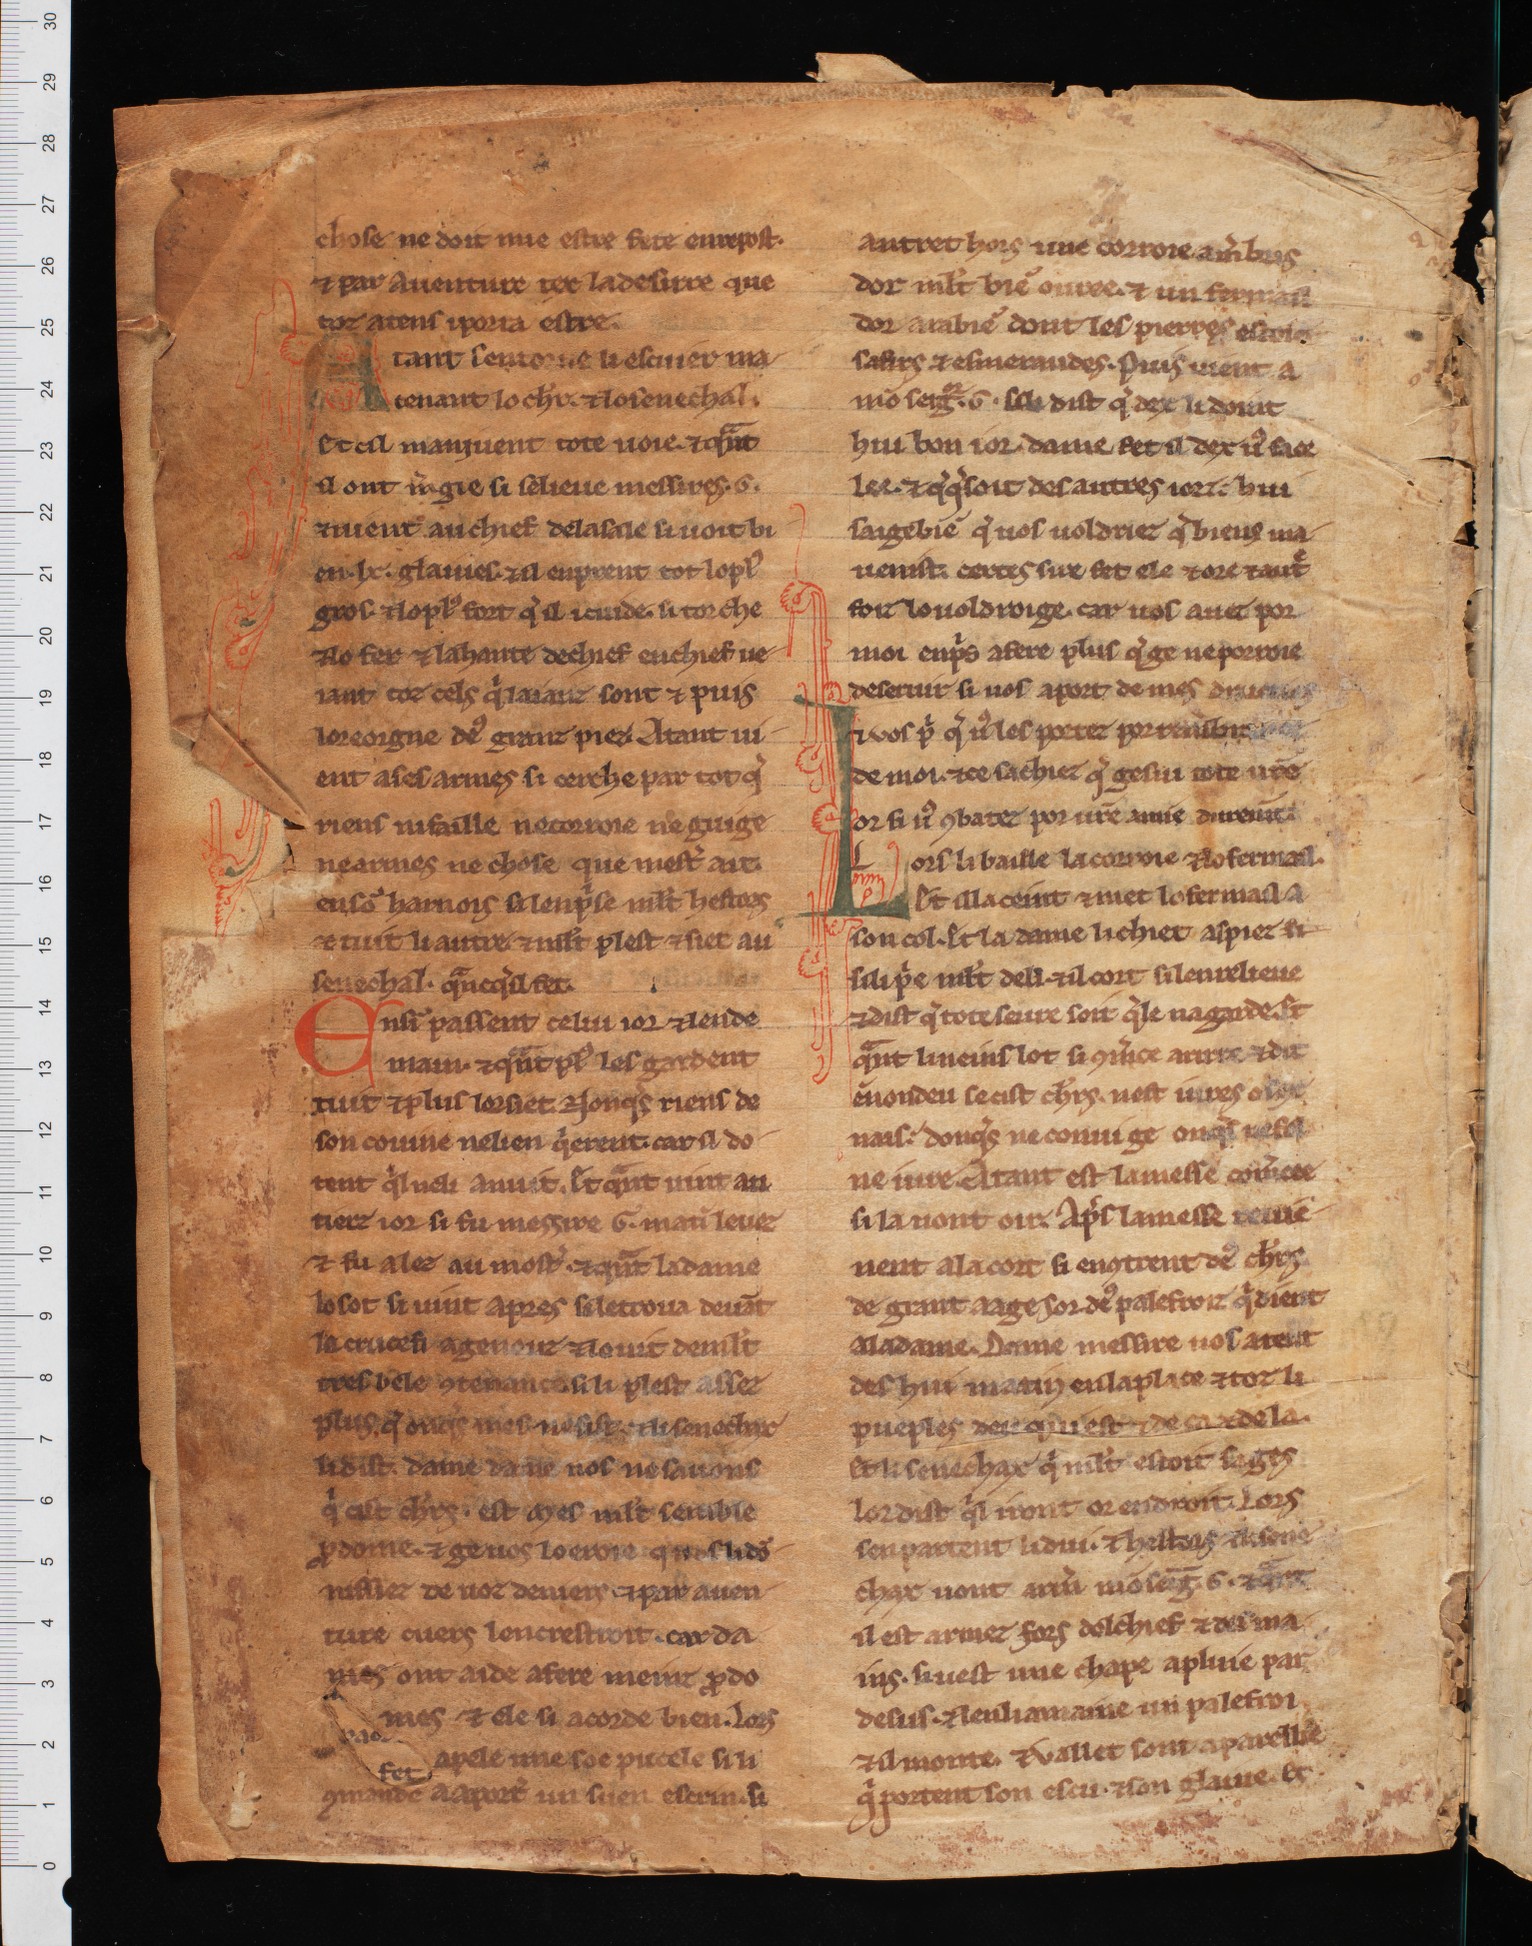 chose ne doit mie estre fete en repost.
⁊ par auenture tex la desirre que
toz atens iporia estre.
Atant sentorne li escuier ma-
tenant lo chr̃. ⁊ lo senechal.
Et cil maniuent tote uoie. ⁊ q̃nt
il ont mãgie si selieue messires .G.
⁊ uient au chief de la sale si uoit bi
en .lx. glaiues. ⁊ il en prent tot lo pl᷒
gros. ⁊ lo pl᷒ fort q̃ il i cuide. si torche
⁊ lo fer ⁊ la hante de chief en chief ue-
iant toz cels q̃ laianz sont ⁊ puis
lo reorgne de᷒ granz piez. Atant ui-
ent a ses armes si cerche par tot q̃
riens ni faille ne corroie ne guige
ne armes ne chose que mest̃ ait.
en sõ harnois si len p̃se ml̃t hestors
⁊ tuit li autre ⁊ ml̃t plest ⁊ siet au
senechal. q̃ncq̃ il fet.
Ensi passent celui ior ⁊ lende
main. ⁊ q̃nt pl᷒ les gardent
tuit ⁊ plus lor siet. ⁊ onq̃s riens de
son couine ne li en q̃erent. car il do-
tent q̃l ne li anuit. Et q̃nt uint au
tierz ior si fu messire G. matĩ leuez
⁊ fu alez au most̃. ⁊ q̃nt la dame
lo sot si uint apres si le troua deuãt
lo crucefi a genouz ⁊ lo uit de ml̃t
tres bele ꝯtenance. si li plest assez
plus q̃ onq̃s mes ne fist. ⁊ li senechax
li dist. dame dame nos ne sauons
q̃ cist chr̃s. est mes ml̃t semble
p̃dome. ⁊ ge uos lo eroie q̃ uos li dõ-
nissiez de uoz deniers ⁊ par auen-
ture cuers len crestroit. car da
mes ont aide a fere meint p̃do
mes ⁊ ele si acorde bien. Lors
apele une soe pucele si li
fet
ꝯmande a aport̃ un suen escrin. si
an tret hors une corroie a mẽbres
dor ml̃t biẽ ouree. ⁊ un fermail
dor arabiẽ dont les pierres estoiẽt
safirs ⁊ esmeraudes. Puis uient a
mõ seig̃nor .G. si li dist q̃ dex li doint
hui bon ior. dame fet il dex u᷒ face
lee. ⁊ q̃ q̃ soit des autres iorz. hui
saige biẽ q̃ uos uoldriez q̃ biens ma-
uenist. certes sire fet ele ⁊ ore ⁊ aut̃
foiz lo uoldroige. car uos auez por
moi enp̃s a fere plus q̃ ge ne porroie
deseruir si uos aport de mes drueries
⁊ uos p̃ q̃ u᷒ les portez por remẽbrance
de moi. ⁊ ce sachiez q̃ ge sui tote ur̃e
or si u᷒ ꝯbatez por ur̃e amie durem̃t.
Lors li baille la corroie ⁊ lo fermail.
Et il la ceint ⁊ met lo fermail a
son col. Et la dame li chiet as piez si
sili p̃e ml̃t deu. ⁊ il cort si len relieue
⁊ dist q̃ tote seure soit q̃le na garde. Et
q̃nt li ueins lot si ꝯmẽce a rirre ⁊ dit
nais. donq̃s ne conui ge onq̃s
ne iure. Atant est la messe comẽcee
si la uont oir. Apr̃s la messe reuiẽ-
nent a la cort si enꝯtrent de᷒ chr̃s
de grant aage sor de᷒ palefroiz q̃ diẽnt
a la dame. Dame messire uos atent
des hui matin en la place ⁊ toz li
pueples deu q̃ uiẽt ⁊ de ca ⁊ de la.
Et li senechax q̃ ml̃t estoit sages
lor dist q̃l iront orendroit. Lors
sen partent li dui. ⁊ hestors ⁊ li sene
chax uont armer mõ seig̃. G. ⁊ q̃nt
il est armez fors del chief ⁊ des ma
ins. si uest une chape a pluie par
desus. ⁊ len li amaine un palefroi
⁊ il monte. ⁊ uallet sont aparellie
q̃ portent son escu. ⁊ son glaiue. Et